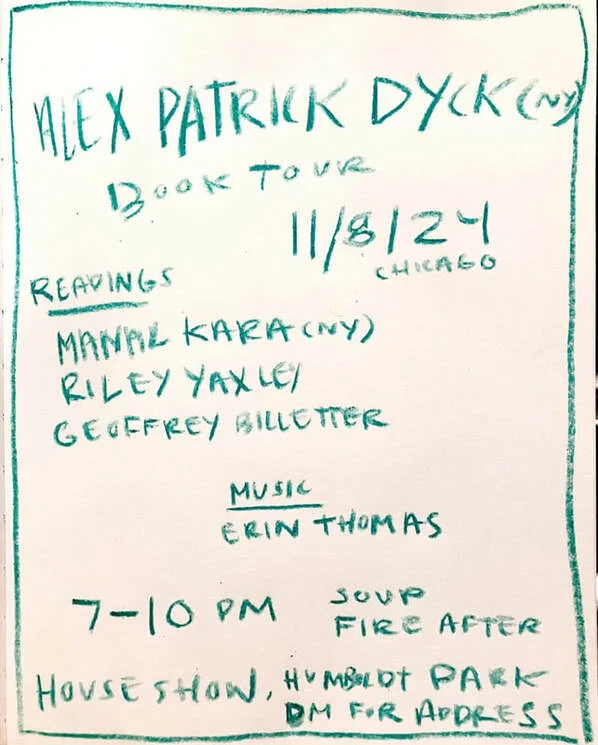 ALEX PATRICK DYCK (NY)
BOOK TOUR
11/8/24
CHICAGO
READINGS
MANAL KARA (NY)
RILEY YAXLEY
GEOFFREY BILLETTER
MUSIC
ERIN THOMAS
7-10 PM
SOUP
FIRE AFTER
HOUSE SHOW, HUMBOLDT PARK
DM FOR ADDRESS